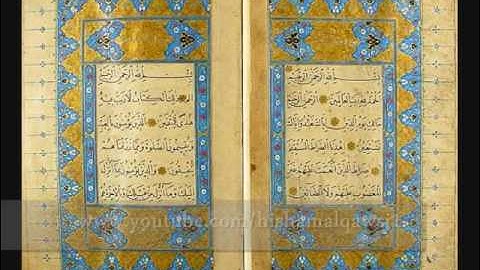 بسم الله الرحمن الرحيم
الحمد لله رب العالمين الرحمن
الرحيم مالك يوم الدين اياك نعبد
واياك نستعين اهدنا الصراط المستقيم
صراط الذين انعمت عليهم غير
المغضوب عليهم ولا الضالين
بسم الله الرحمن الرحيم
الم ذلك الكتاب لا ريب فيه
هدى للمتقين الذين يؤمنون بالغيب
ويقيمون الصلوة ومما رزقناهم
ينفقون والذين يؤمنون بما انزل
اليك وما انزل من قبلك